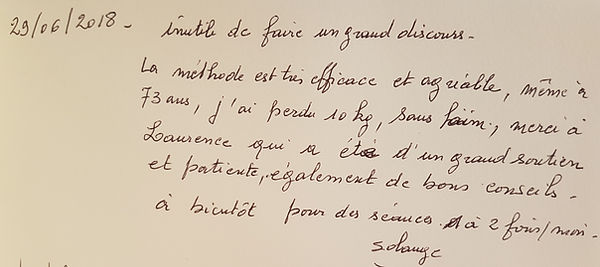 29/06/2018 - inutile de faire un grand discours -
La méthode est très efficace et agréable, même à
73 ans, j'ai perdu 10 kg, sans faim, merci à
Laurence qui a été d'un grand soutien
et patiente, également de bons conseils -
à bientôt pour des séances à 2 fois/mois -
Solange